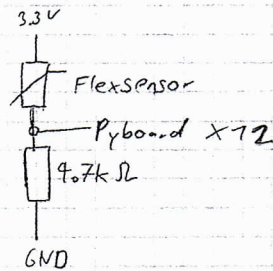 3.3V
FlexSensor
Pyboard X12
4.7k Ω
GND